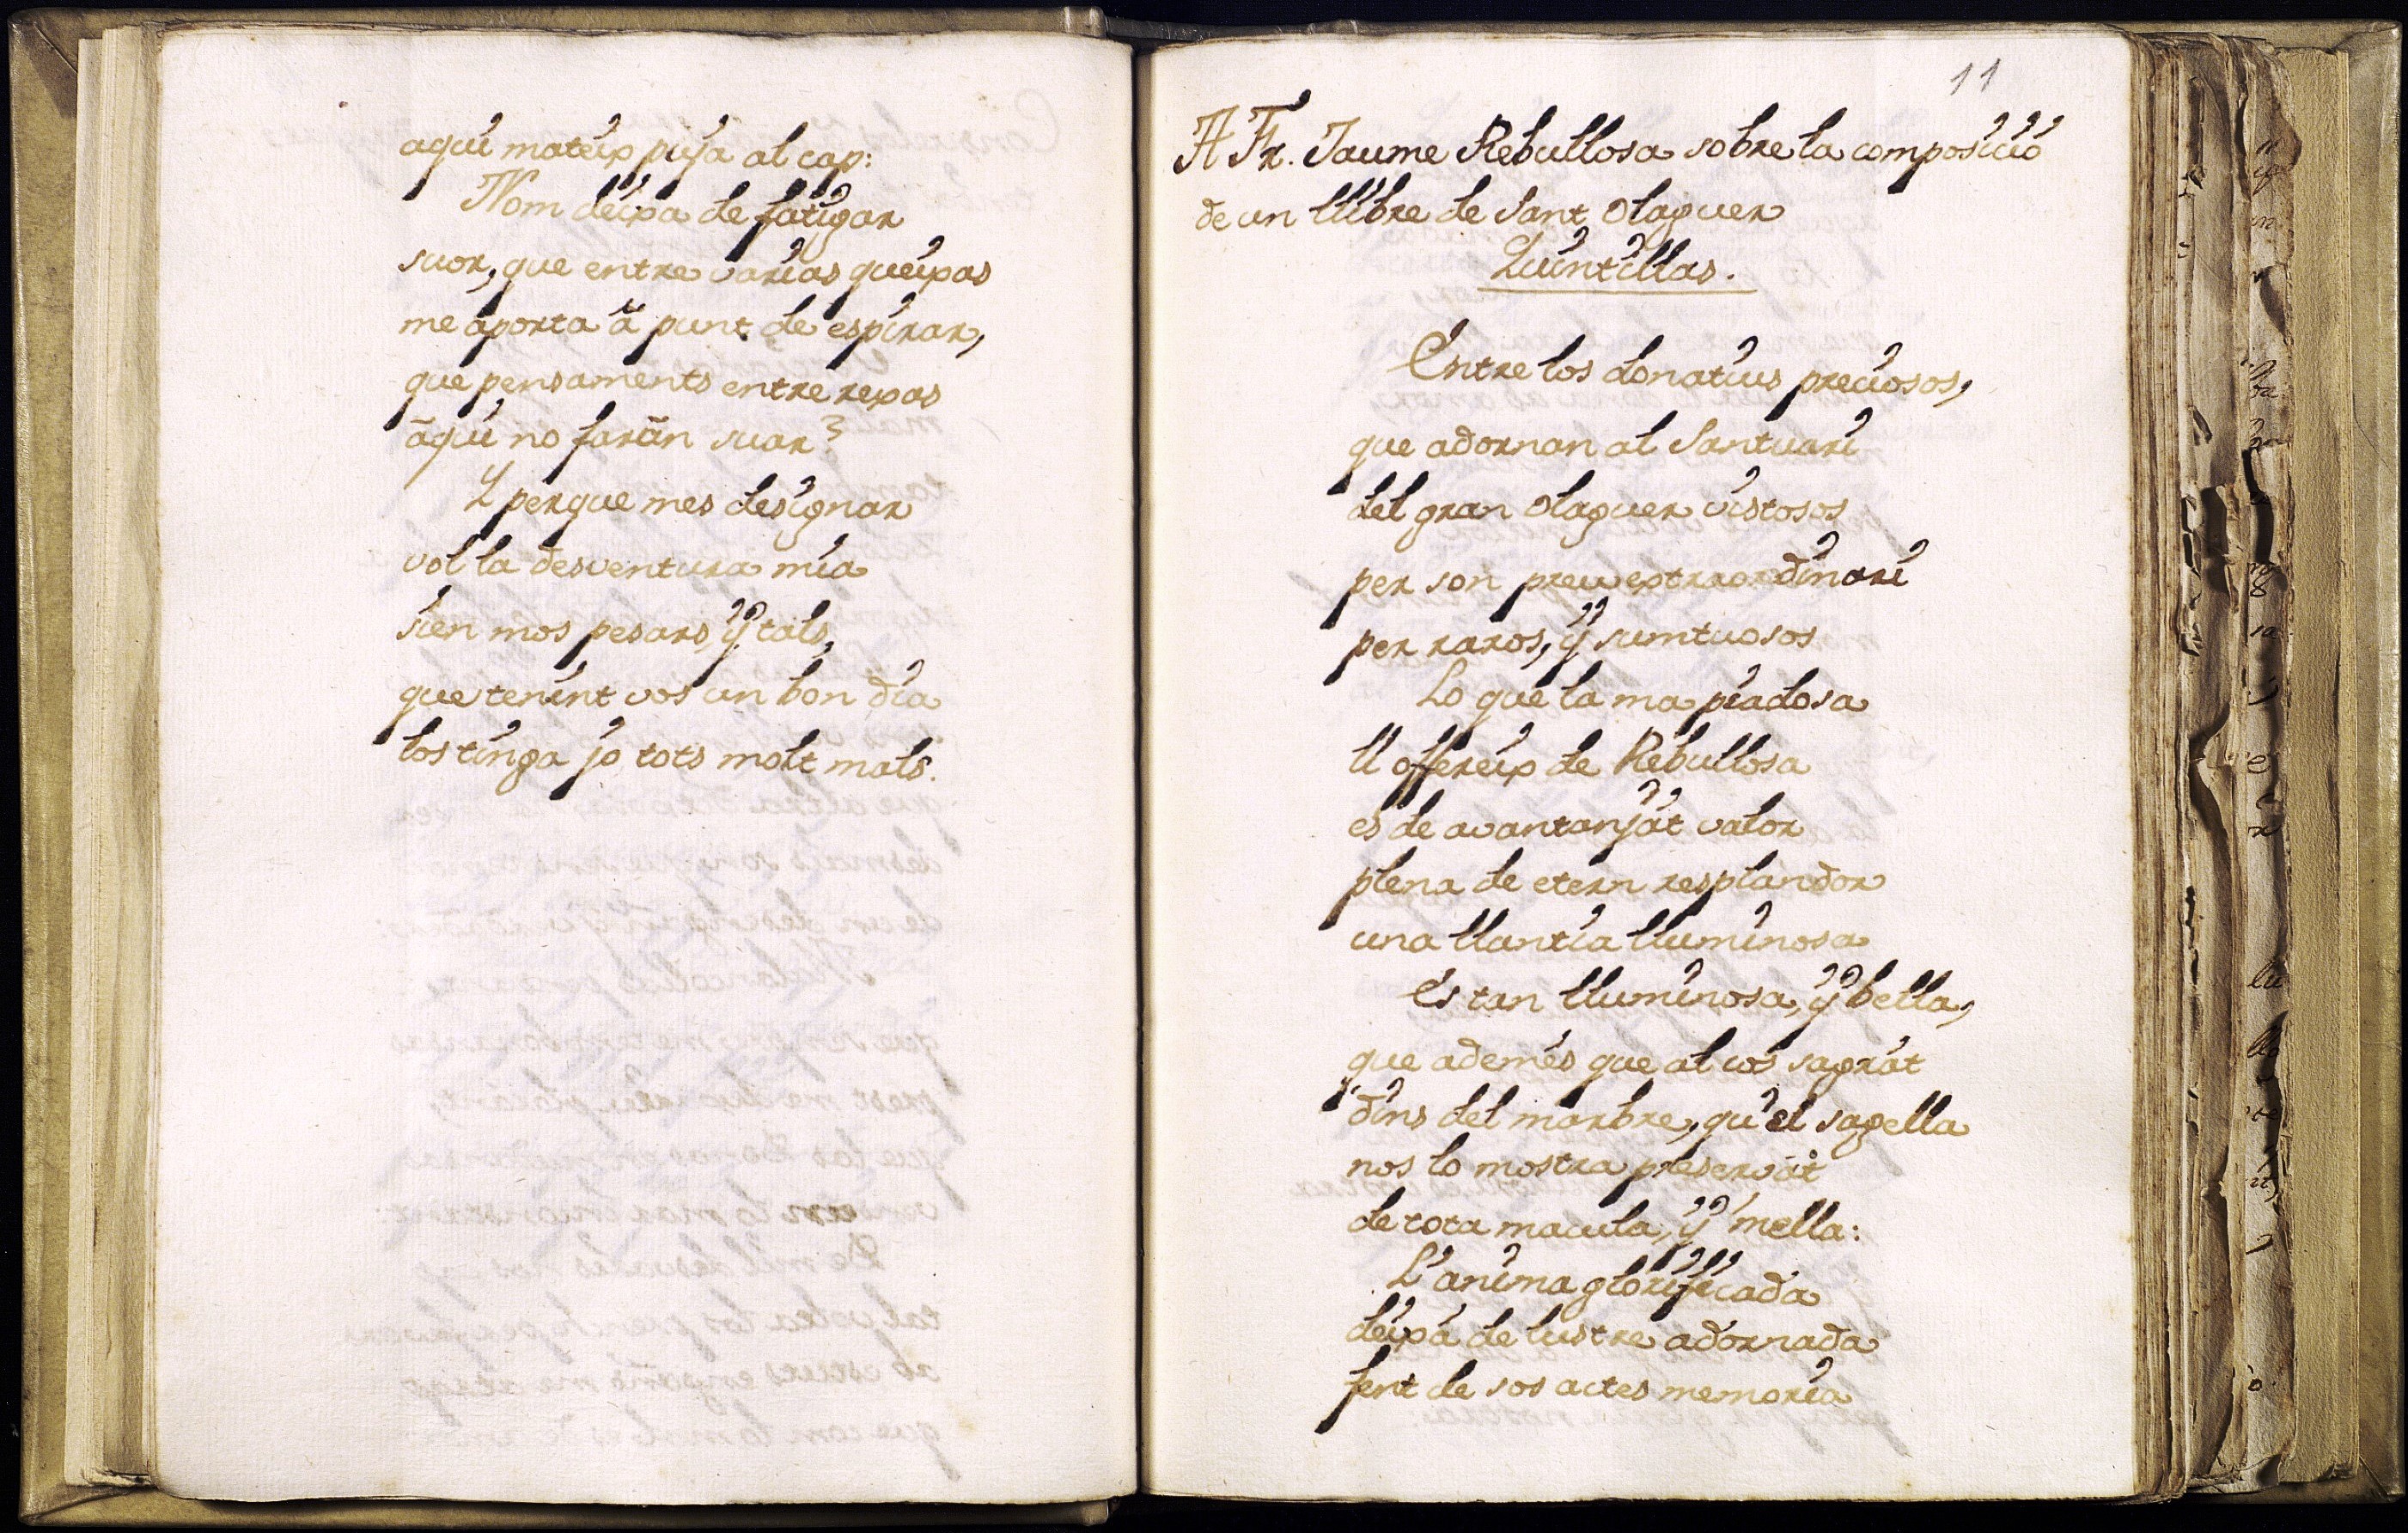 aquí mateix puja al cap:
Nom deixa de fatigar
suor, que entre varias queixas
me aporta à punt de espirar,
que pensaments entre rexas
àquí no faràn suar?
Y perque mes designar
vol la desventura mia
sien mos pesars, ÿ tals,
que tenint vos un bon dia
los tinga jo tots molt mals.
11
A Fr. Jaume Rebullosa sobre la composició
de un llibre de Sant Olaguer
Quintillas.
Entre los donatius preciosos,
que adornan al Santuari
del gran Olaguer vistosos
per son preu extraordinari
per raros, ÿ sumtuosos
Lo que la ma piadosa
ll offereix de Rebullosa
es de avantanjat valor
plena de etern resplandor
una llantia lluminosa
És tan lluminosa, ÿ bella,
que ademés que al cos sagrát
dins del marbre, qu'el sagella
nos lo mostra preservát
de tota macula, ÿ mella:
L'anima glorificada
deixa de lustre adornada
fent de sos actes memoria